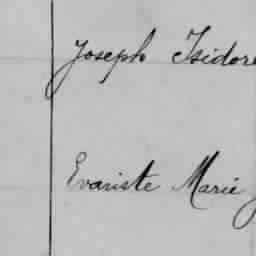 Joseph Isidore
Evariste Marie